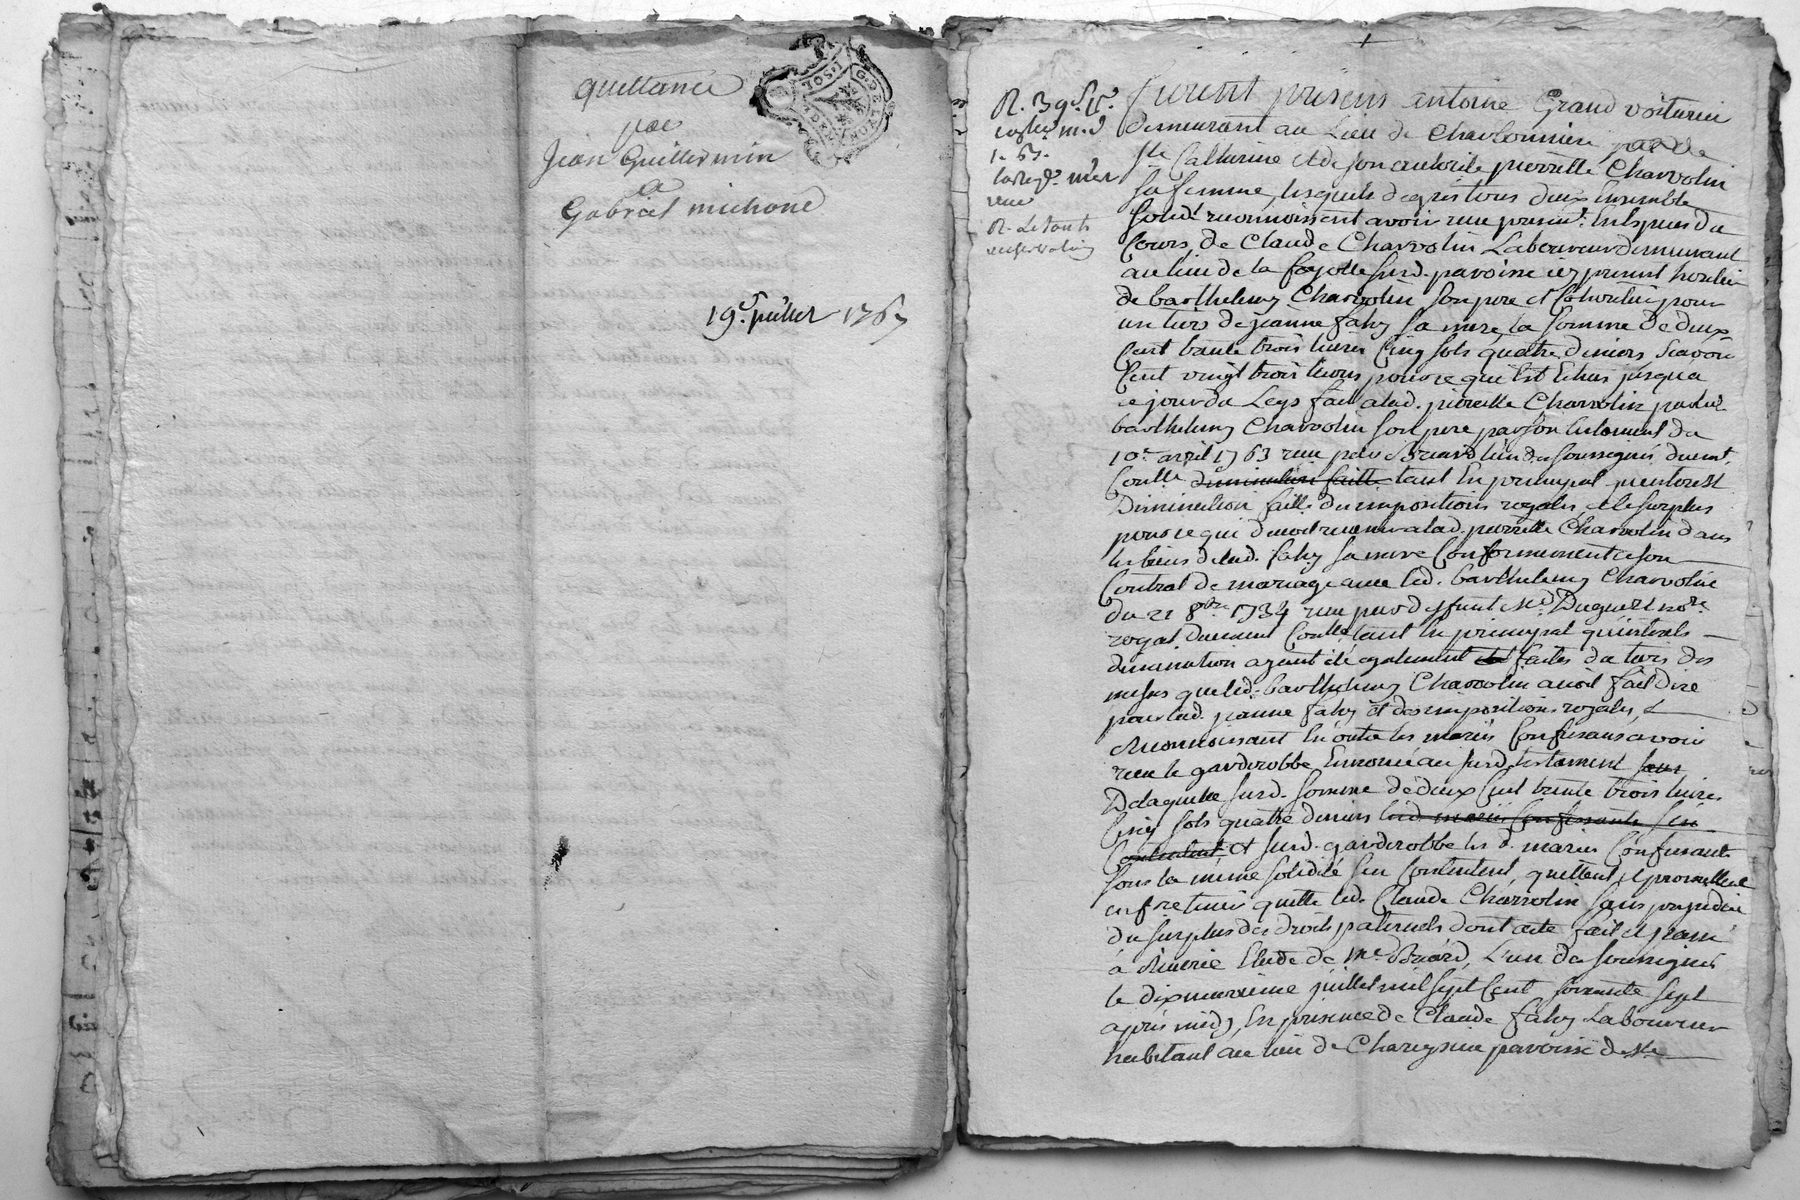 quittance
par
Jean Guillermin
a
Gabriel michond
19e juillet 1767
J. SOL
G. DE LYON
R. 39s
Furent presens antoine Grand voiturier
demeurant au Lieu de Charbonniere par de
ste Catherine et de son authorité pierrette Charvolin
sa femme, lesquels de gré tous deux Ensemble
solid. reconnoissent avoir reçu presnt. En Espèces du
Cours, de Claude Charvolin Laboureur demeurant
au lieu de la fayolle susd. paroisse icy present heritier
de barthelemy Charvolin son pere et Coheritier pour
un tiers de jeanne fahy sa mere, la somme de deux
Cent trente trois livres Cinq sols quatre deniers Scavoir
Cent vingt trois livres pour ce qui Est Echus jusqu'a
ce jour du Legs fait a lad. pierrette Charvolin par led.
barthelemy Charvolin son pere par son testament du
10e avril 1763 reçu par l'un des soussignés duemt.
Contllé diminution faitte tant En principal qu'interest
Diminution faitte des impositions royales, et le surplus
pour ce qui devoit revenir a lad. pierrette Charvolin dans
les biens de lad. fahy sa mere Conformement a son
Contrat de mariage avec led. barthelemy Charvolin
du 21 8bre 1734 reçu par deffunt Me Duguet nore
royal duement Contllé tant En principal qu'interets
diminution ayant été egalement faites du tiers des
messes que led. barthelemy Charvolin avoit fait dire
pour lad. jeanne fahy et des impositions royales, et
reconnoissant En outre les mariés Confessans avoir
reçu le garderobbe Enoncé au susd. testament
De laquelle susd. somme de deux Cent trente trois livres
Cinq sols quatre deniers lesd. mariés Confessants s'en
Contentent et susd. garderobbe les d. mariés Confessants
sous la meme solidité s'en Contentent, quittent et promettent
en faire tenir quitte led. Claude Charvolin sans prejudice
du surplus des droits paternels dont acte fait et passé
à Riverie Etude de Me L'un des soussignés
le dix neuvieme juillet mil sept Cent soixante sept
après midy, En presence de Claude fahy Laboureur
habitant au lieu de paroisse de ste